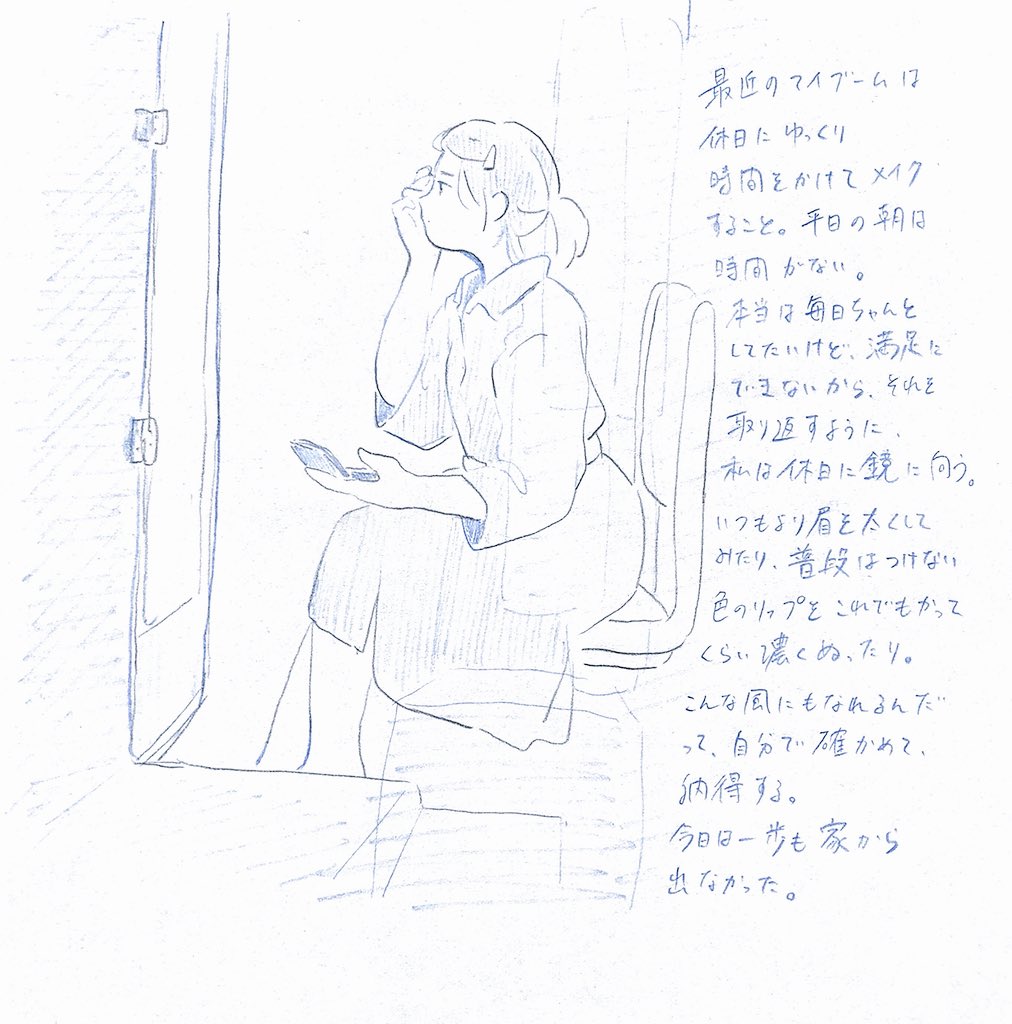 最近のマイブームは
休日に ゆっくり
時間をかけて メイク
すること。平日の朝は
時間がない。
本当は毎日ちゃんと
してたいけど、満足に
できないから、それを
取り返すように、
私は休日に鏡に向う。
いつもより眉を太くして
みたり、普段はつけない
色のリップを これでもかって
くらい濃くぬったり。
こんな風にもなれるんだ
って、自分で確かめて、
納得する。
今日は一歩も家から
出なかった。